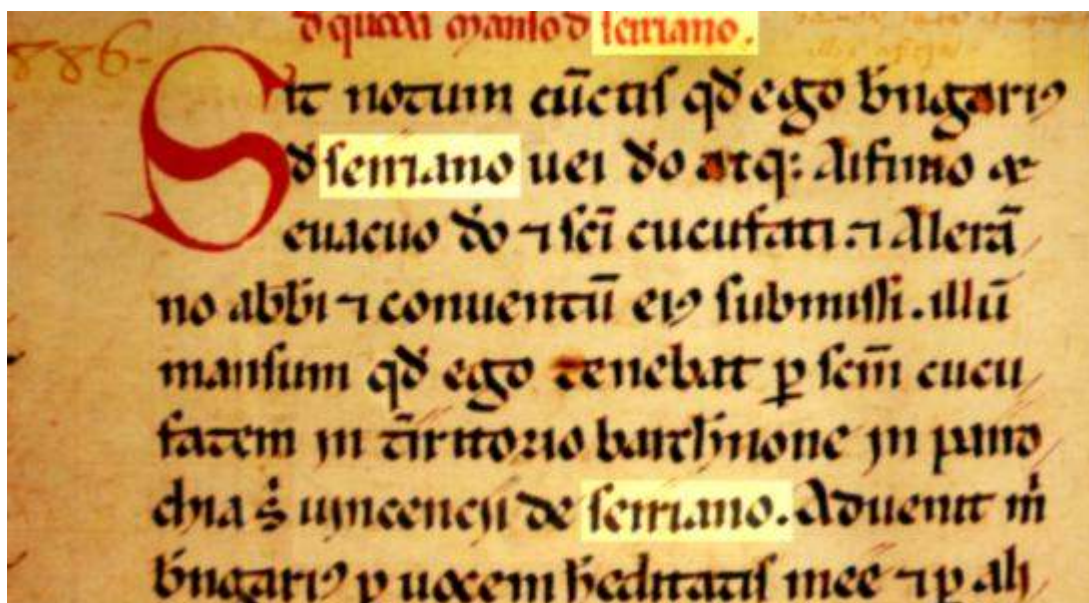 886-
d̄ quodā manso d̄ serriano.
Sit notum cūctis qd̄ ego b̄ngariꝰ
d̄ serriano uel d̄o atq:
euacuo d̄o ⁊ sc̄i cucufati. ⁊ Alerā
no abb̄i ⁊ conuentū eiꝰ submissi. illū
mansum qd̄ ego tenebat ꝑ sc̄m cucu
fatem in t̄irritorio barch̄inone jn parro
chia s̄ ujncencij de serriano. Aduenit m̄
b̄ngariꝰ ꝑ uocem h̄editatis mee ⁊ ꝑ ali